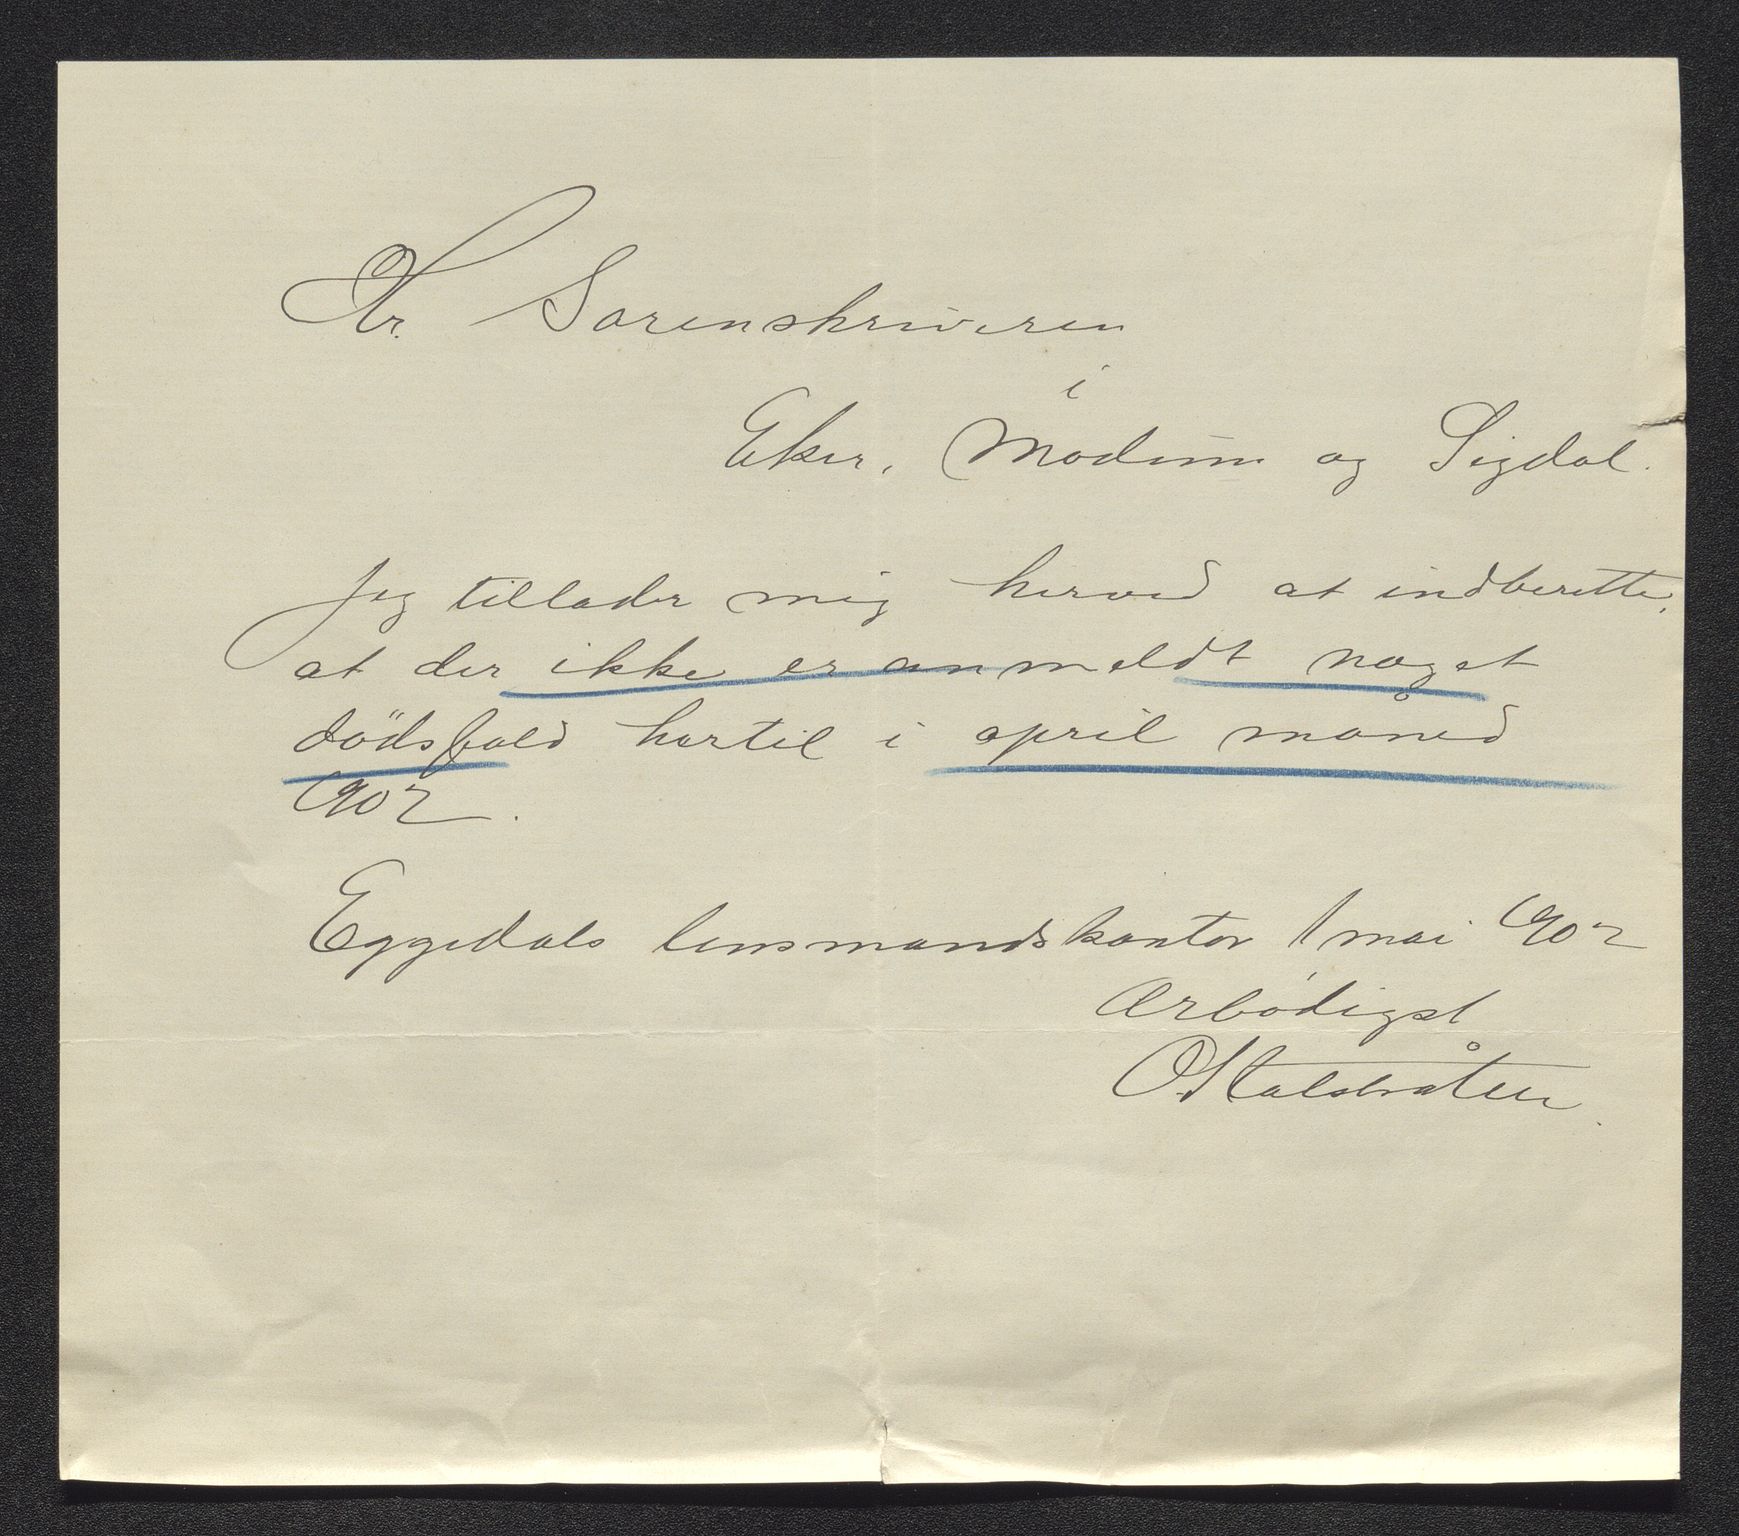 Hr. Sorenskriveren
i
Eker, Modum og Sigdal.
Jeg tillader mig herved at indberette,
at der ikke er anmeldt noget
dödsfald hertil i april måned
1902.
Eggedals lensmandskontor 1 mai 1902
Ærbödigst
O. Kalstråten